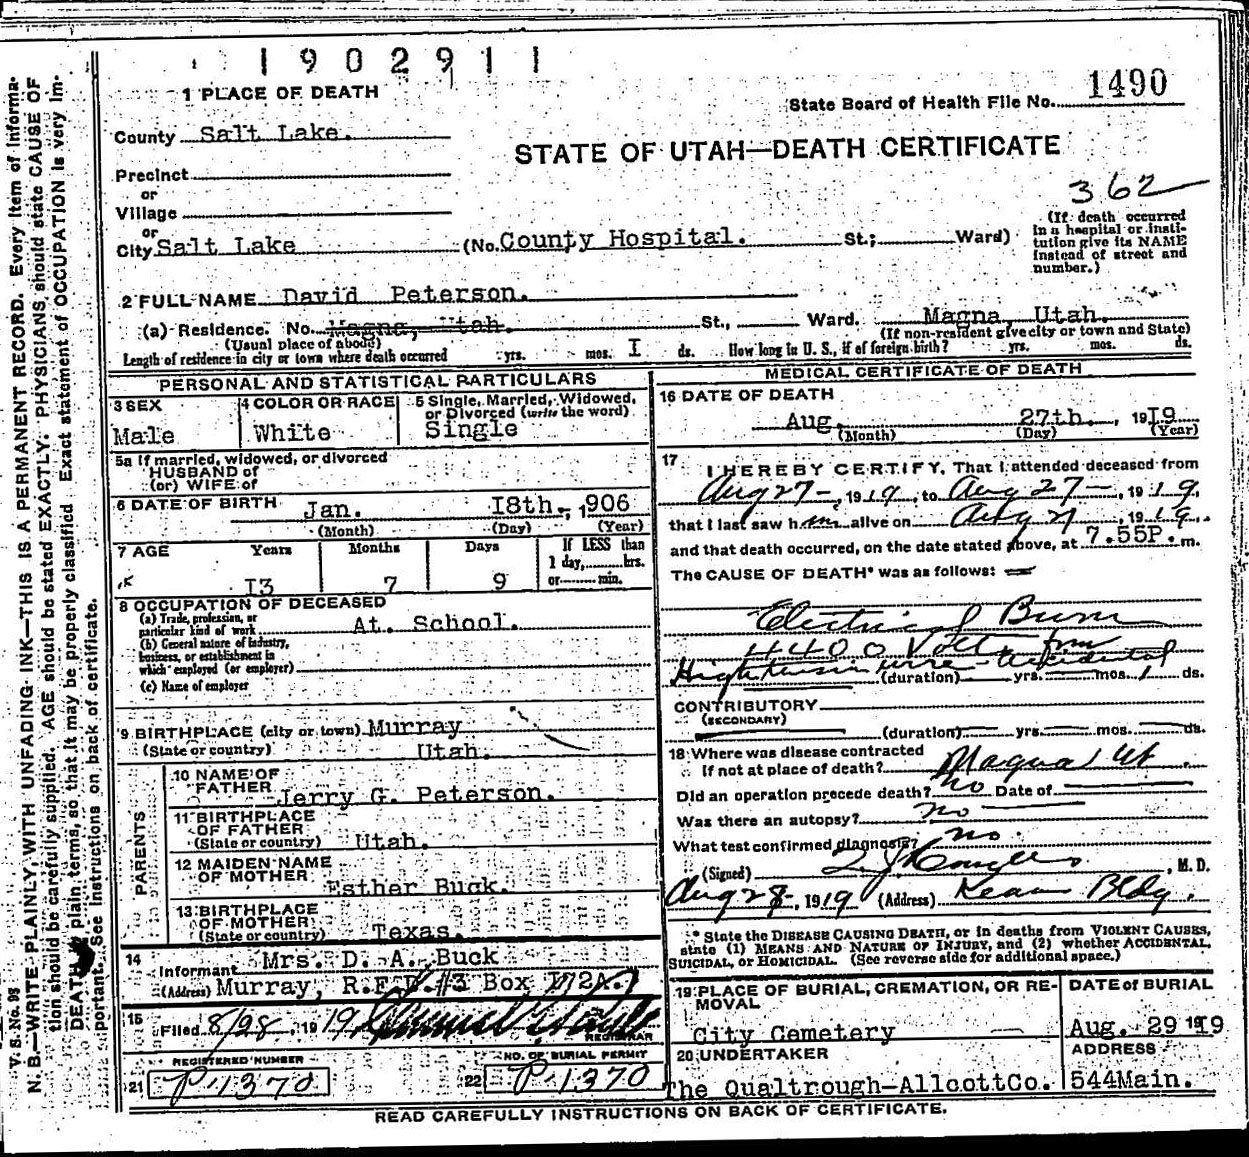 1902911
1 PLACE OF DEATH
State Board of Health File No. 1490
County Salt Lake.
STATE OF UTAH—DEATH CERTIFICATE
Precinct
or
Village
362
or
City Salt Lake (No. County Hospital. St.; Ward)
(If death occurred
in a hospital or insti-
tution give its NAME
instead of street and
number.)
2 FULL NAME David Peterson.
(a) Residence. No. Magna, Utah. St., Ward. Magna, Utah.
(Usual place of abode) (If non-resident give city or town and State)
Length of residence in city or town where death occurred yrs. mos. I ds. How long in U. S., if of foreign birth? yrs. mos. ds.
PERSONAL AND STATISTICAL PARTICULARS
3 SEX
Male
4 COLOR OR RACE
White
5 Single, Married, Widowed,
or Divorced (write the word)
Single
5a If married, widowed, or divorced
HUSBAND of
(or) WIFE of
6 DATE OF BIRTH Jan. I8th., 1906
(Month) (Day) (Year)
7 AGE Years Months Days If LESS than
1 day, hrs.
I3 7 9 or min.
8 OCCUPATION OF DECEASED
(a) Trade, profession, or
particular kind of work At. School.
(b) General nature of industry,
business, or establishment in
which employed (or employer)
(c) Name of employer
9 BIRTHPLACE (city or town) Murray
(State or country) Utah.
PARENTS
10 NAME OF
FATHER Jerry G. Peterson.
11 BIRTHPLACE
OF FATHER
(State or country) Utah.
12 MAIDEN NAME
OF MOTHER
Esther Buck.
13 BIRTHPLACE
OF MOTHER
(State or country) Texas.
14
Informant Mrs. D. A. Buck
(Address) Murray, R.F.D. #3 Box I72A.
15
Filed 8/28, 1919
REGISTRAR
REGISTERED NUMBER
21 P-1370
NO. OF BURIAL PERMIT
22 P-1370
MEDICAL CERTIFICATE OF DEATH
16 DATE OF DEATH
Aug. 27th., 19I9
(Month) (Day) (Year)
17 I HEREBY CERTIFY, That I attended deceased from
Aug 27-, 1919, to Aug 27-, 1919,
that I last saw him alive on Aug 27, 1919,
and that death occurred, on the date stated above, at 7.55P. m.
The CAUSE OF DEATH* was as follows:
Electrical Burn
4400 Volts from
High tension wire - Accidental
(duration) yrs. mos. 1 ds.
CONTRIBUTORY
(SECONDARY)
(duration) yrs. mos. ds.
18 Where was disease contracted
If not at place of death? Magna Ut
Did an operation precede death? No Date of
Was there an autopsy? No
What test confirmed diagnosis? No
(Signed) M. D.
Aug 28-, 1919 (Address) Kearns Bldg.
* State the DISEASE CAUSING DEATH, or in deaths from VIOLENT CAUSES,
state (1) MEANS AND NATURE OF INJURY, and (2) whether ACCIDENTAL,
SUICIDAL, or HOMICIDAL. (See reverse side for additional space.)
19 PLACE OF BURIAL, CREMATION, OR RE-
MOVAL
City Cemetery
DATE of BURIAL
Aug. 29 1919
20 UNDERTAKER
The Qualtrough-AllcottCo.
ADDRESS
544Main.
READ CAREFULLY INSTRUCTIONS ON BACK OF CERTIFICATE.
V. S. No. 98
N. B.—WRITE PLAINLY, WITH UNFADING INK—THIS IS A PERMANENT RECORD. Every item of informa-
tion should be carefully supplied. AGE should be stated EXACTLY. PHYSICIANS should state CAUSE OF
DEATH in plain terms, so that it may be properly classified. Exact statement of OCCUPATION is very im-
portant. See instructions on back of certificate.